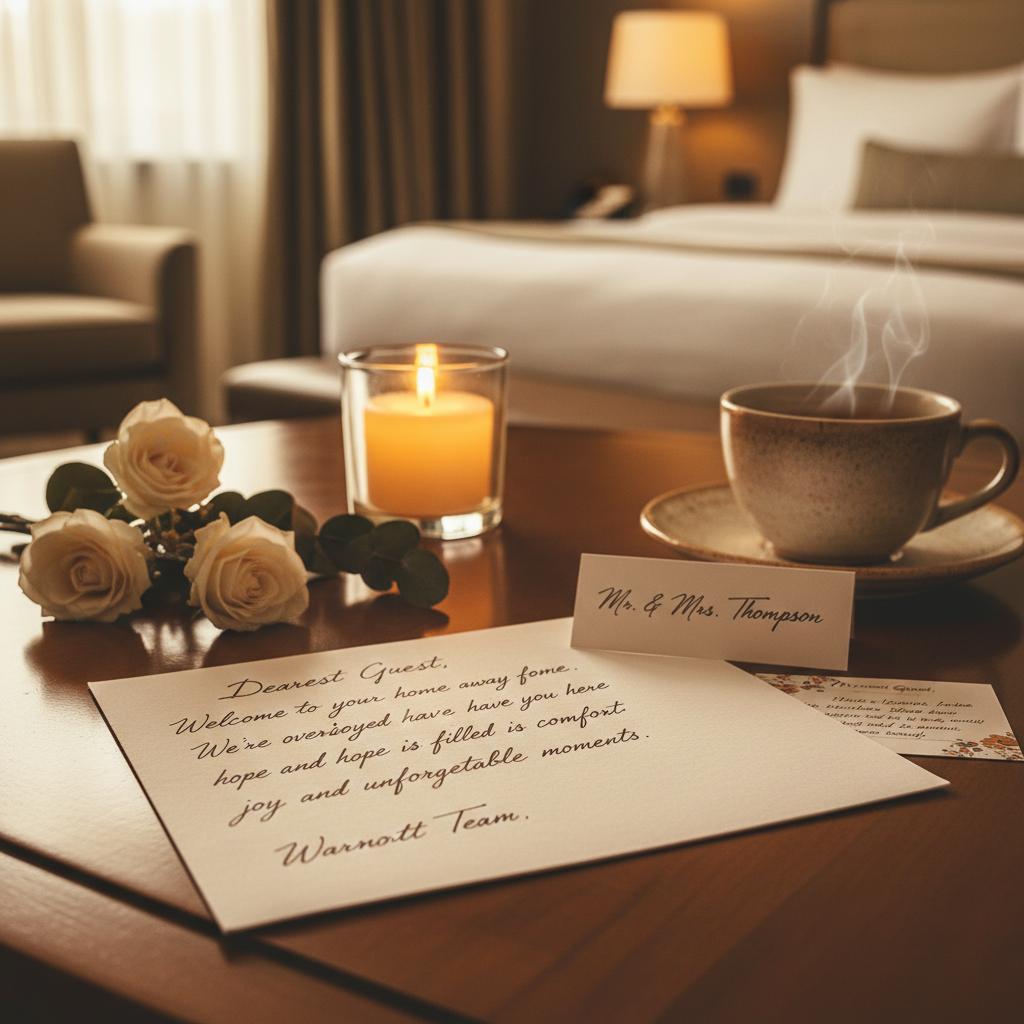 Dearest Guest,
Welcome to your home away fome.
We're overijoyed have have you here
hope and hope is filled is comfort
joy and unforgetable moments.
Warnott Team.
Mr. & Mrs. Thompson